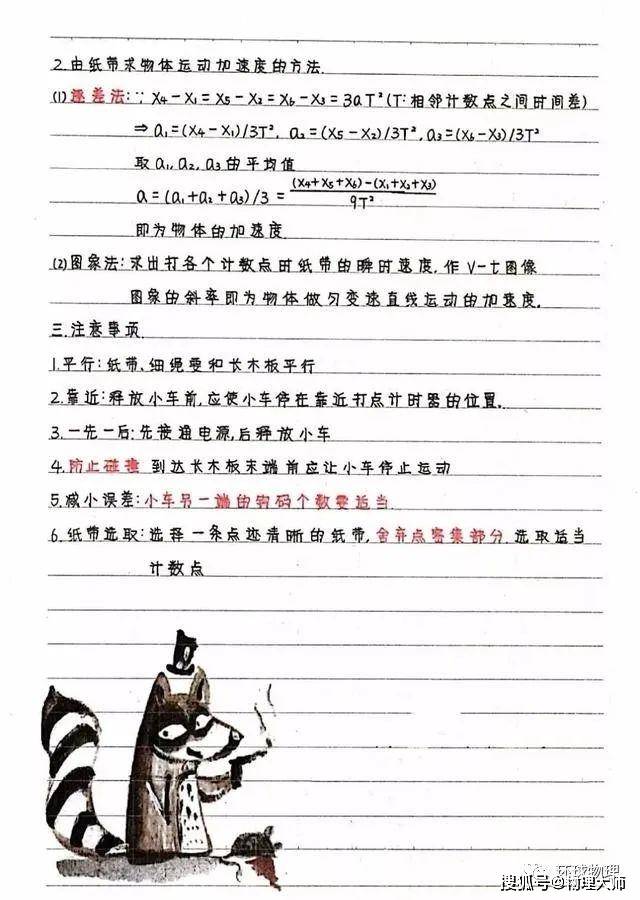 2.由纸带求物体运动加速度的方法.
(1)逐差法:∵ X₄-X₁=X₅-X₂=X₆-X₃=3aT²(T:相邻计数点之间时间差)
⇒a₁=(X₄-X₁)/3T², a₂=(X₅-X₂)/3T²,a₃=(X₆-X₃)/3T²
取a₁,a₂,a₃的平均值
a=(a₁+a₂+a₃)/3=(X₄+X₅+X₆)-(X₁+X₂+X₃)/9T²
即为物体的加速度
(2)图象法:求出打各个计数点时纸带的瞬时速度,作V-t图像
图象的斜率即为物体做匀变速直线运动的加速度.
三.注意事项
1.平行:纸带、细绳要和长木板平行
2.靠近:释放小车前,应使小车停在靠近打点计时器的位置.
3.一先一后:先接通电源,后释放小车
4.防止碰撞 到达长木板末端前应让小车停止运动
5.减小误差:小车另一端的钩码个数要适当
6.纸带选取:选择一条点迹清晰的纸带,舍弃点密集部分.选取适当
计数点
环球物理
搜狐号@物理大师